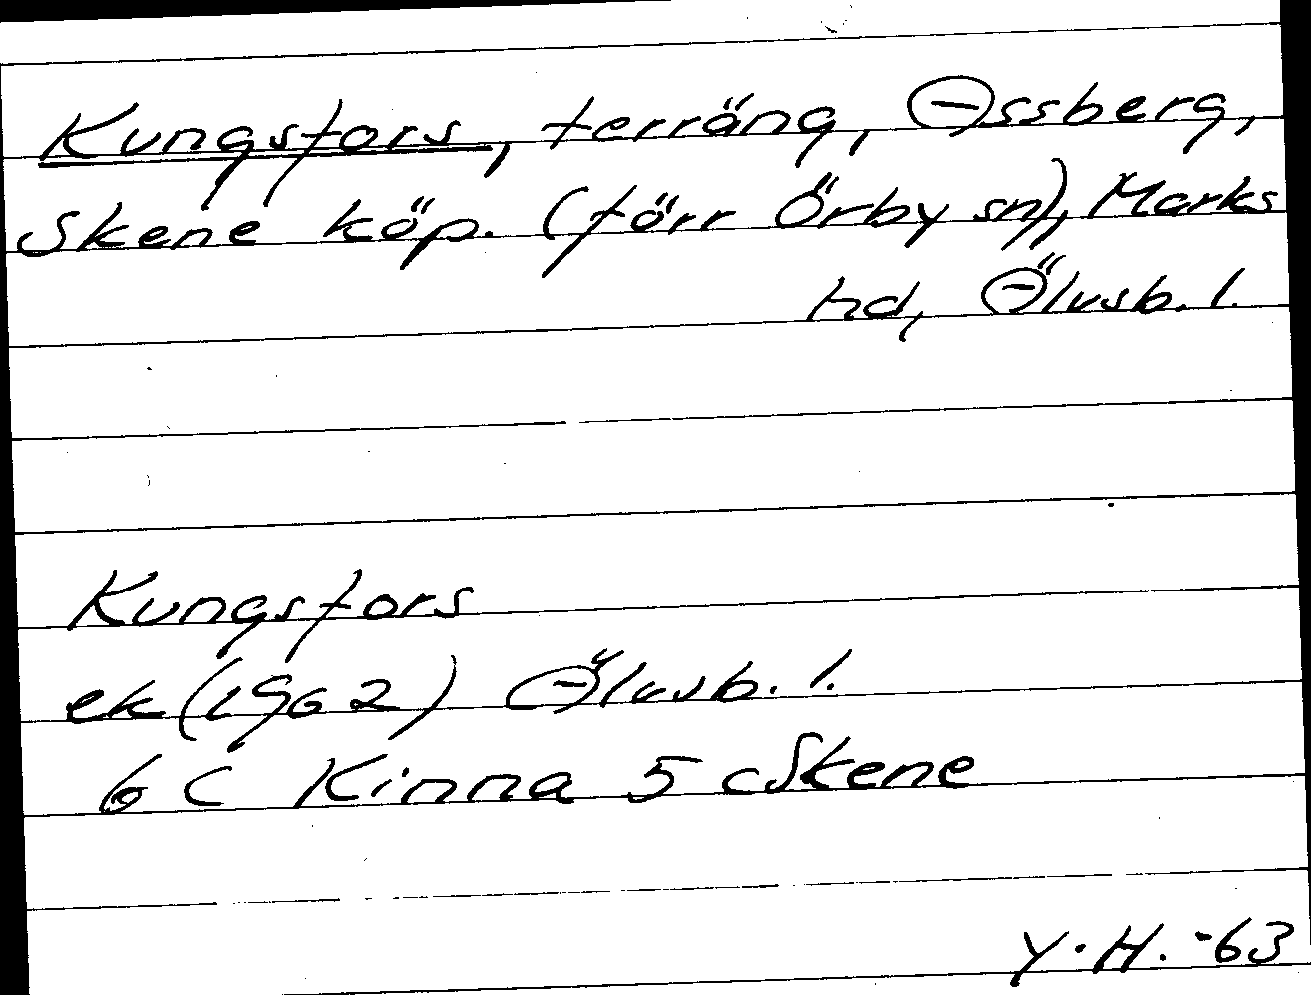 Kungsfors, terräng, Assberg,
Skene köp. (förr Örby sn), Marks
hd, Älvsb. l.
Kungsfors
ek (1962) Älvsb. l.
6 C Kinna 5 c Skene
Y. H. -63